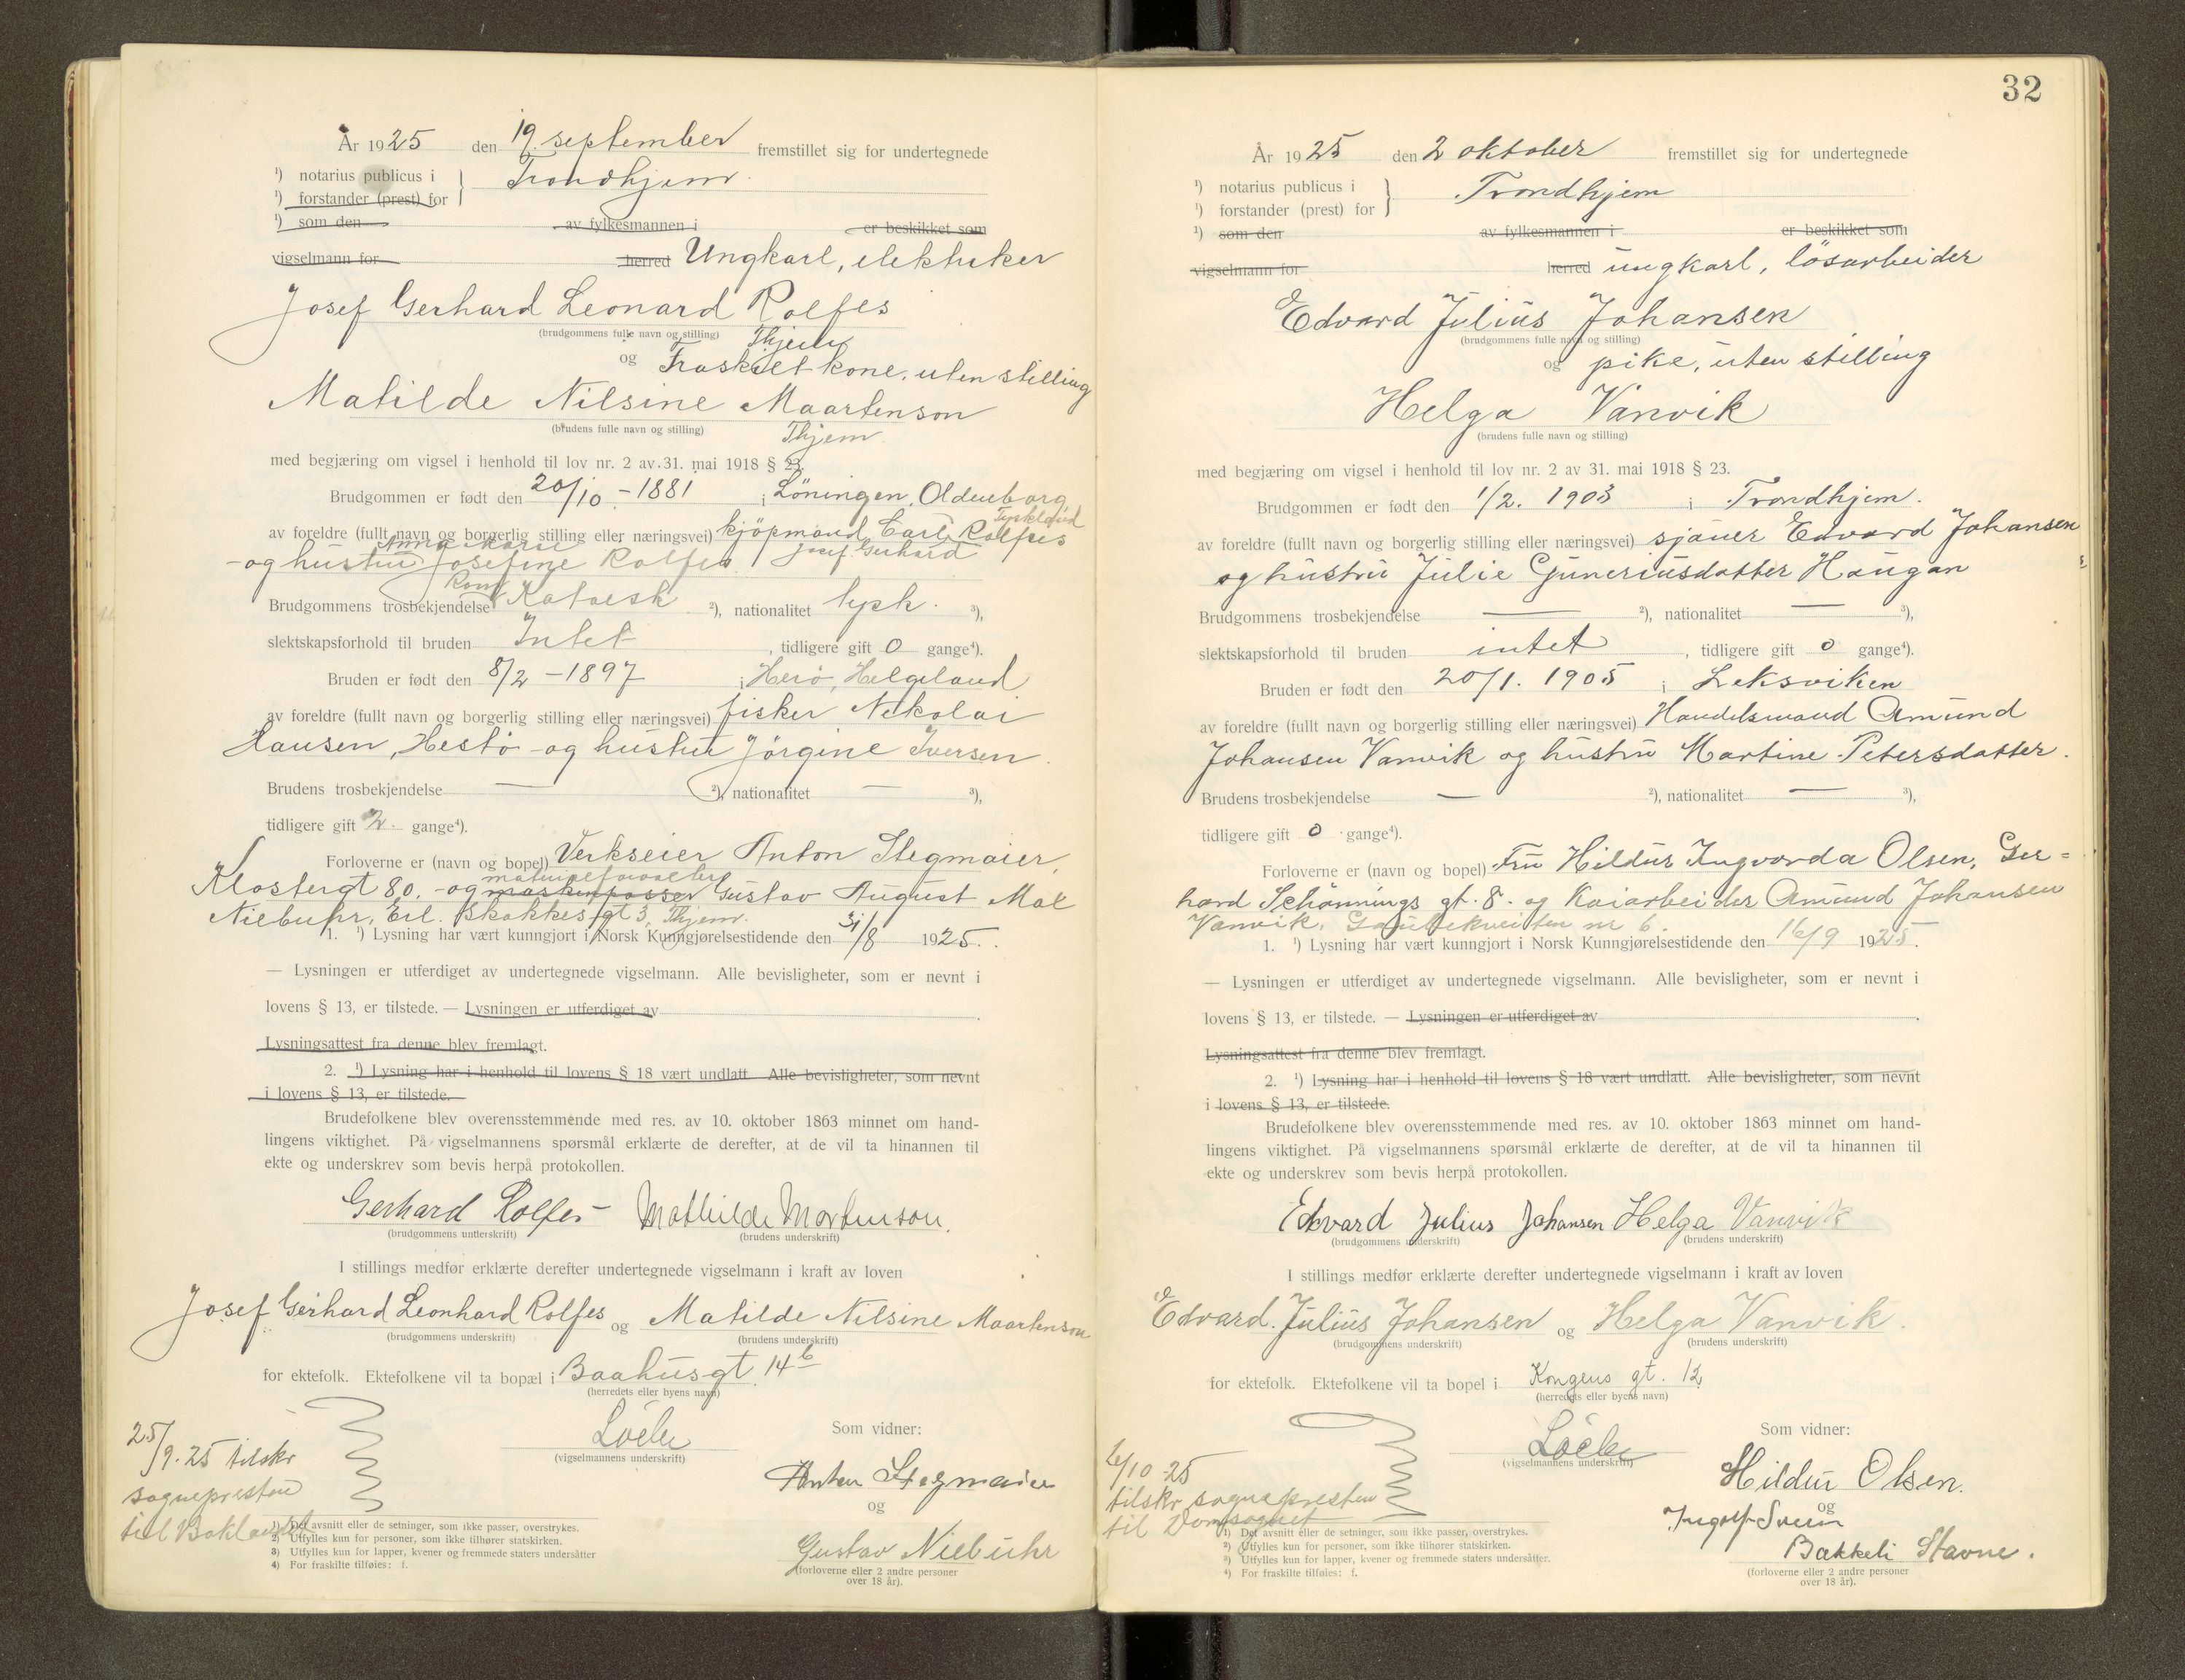 År 1925 den 19. september fremstillet sig for undertegnede
¹) notarius publicus i } Trondhjem.
¹) forstander (prest) for
¹) som den av fylkesmannen i er beskikket som
vigselmann for herred Ungkarl, elektriker
Josef Gerhard Leonard Rolfes
(brudgommens fulle navn og stilling) Thjem
og Fraskilt kone, uten stilling
Matilde Nilsine Maartenson
(brudens fulle navn og stilling) Thjem
med begjæring om vigsel i henhold til lov nr. 2 av 31. mai 1918 § 23.
Brudgommen er født den 20/10 - 1881 i Löningen, Oldenborg
Tyskland
av foreldre (fullt navn og borgerlig stilling eller næringsvei) kjöpmand Carl Rolfes
Anna Marie Josef Gerhard
- og hustru Josefine Rolfes
Rom
Brudgommens trosbekjendelse Katolsk ²), nationalitet tysk. ³),
slektskapsforhold til bruden Intet, tidligere gift 0 gange⁴).
Bruden er født den 8/2 - 1897 i Herö, Helgeland
av foreldre (fullt navn og borgerlig stilling eller næringsvei) fisker Nikolai
Hansen, Hestö - og hustru Jörgine Iversen.
Brudens trosbekjendelse — ²), nationalitet — ³),
tidligere gift 2. gange⁴).
Forloverne er (navn og bopel) Verkseier Anton Stegmaier,
materialforvalter
Klostergt 80. - og maskinpasser Gustav August Mal
Niebuhr, Erl. Skakkes gt 3, Thjem.
1. ¹) Lysning har vært kunngjort i Norsk Kunngjørelsestidende den 31/8 1925.
— Lysningen er utferdiget av undertegnede vigselmann. Alle bevisligheter, som er nevnt i
lovens § 13, er tilstede. — Lysningen er utferdiget av
Lysningsattest fra denne blev fremlagt.
2. ¹) Lysning har i henhold til lovens § 18 vært undlatt Alle bevisligheter, som nevnt
i lovens § 13, er tilstede.
Brudefolkene blev overensstemmende med res. av 10. oktober 1863 minnet om hand-
lingens viktighet. På vigselmannens spørsmål erklærte de derefter, at de vil ta hinannen til
ekte og underskrev som bevis herpå protokollen.
Gerhard Rolfes Mathilde Mortenson.
(brudgommens underskrift) (brudens underskrift)
I stillings medfør erklærte derefter undertegnede vigselmann i kraft av loven
Josef Gerhard Leonhard Rolfes og Matilde Nilsine Maartenson
(brudgommens underskrift) (brudens underskrift)
for ektefolk. Ektefolkene vil ta bopæl i Baahusgt. 14 b
(herredets eller byens navn)
Som vidner:
(vigselmannens underskrift)
25/9-25 tilskr
sognepresten
til Baklandet
Anton Stegmaier
og
Gustav Niebuhr
(forloverne eller 2 andre personer
over 18 år).
1) Det avsnitt eller de setninger, som ikke passer, overstrykes.
2) Utfylles kun for personer, som ikke tilhører statskirken.
3) Utfylles kun for lapper, kvener og fremmede staters undersåtter
4) For fraskilte tilføies: f.
32
År 1925 den 2 oktober fremstillet sig for undertegnede
¹) notarius publicus i } Trondhjem
¹) forstander (prest) for
¹) som den av fylkesmannen i er beskikket som
vigselmann for herred ungkarl, lösarbeider
Edvard Julius Johansen
(brudgommens fulle navn og stilling)
og pike, uten stilling
Helga Vanvik
(brudens fulle navn og stilling)
med begjæring om vigsel i henhold til lov nr. 2 av 31. mai 1918 § 23.
Brudgommen er født den 1/2. 1903 i Trondhjem.
av foreldre (fullt navn og borgerlig stilling eller næringsvei) sjauer Edvard Johansen
og hustru Julie Guneriusdatter Haugan
Brudgommens trosbekjendelse — ²), nationalitet — ³),
slektskapsforhold til bruden intet, tidligere gift 0 gange⁴).
Bruden er født den 20/1. 1905 i Leksviken
av foreldre (fullt navn og borgerlig stilling eller næringsvei) Handelsmand Amund
Johansen Vanvik og hustru Martine Petersdatter.
Brudens trosbekjendelse — ²), nationalitet — ³),
tidligere gift 0 gange⁴).
Forloverne er (navn og bopel) Fru Hildur Ingvarda Olsen, Ger=
hard Schønnings gt. 8. og Kaiarbeider Amund Johansen
Vanvik, Gaubekveiten nr 6.
1. ¹) Lysning har vært kunngjort i Norsk Kunngjørelsestidende den 16/9 1925.
— Lysningen er utferdiget av undertegnede vigselmann. Alle bevisligheter, som er nevnt i
lovens § 13, er tilstede. — Lysningen er utferdiget av
Lysningsattest fra denne blev fremlagt.
2. ¹) Lysning har i henhold til lovens § 18 vært undlatt. Alle bevisligheter, som nevnt
i lovens § 13, er tilstede.
Brudefolkene blev overensstemmende med res. av 10. oktober 1863 minnet om hand-
lingens viktighet. På vigselmannens spørsmål erklærte de derefter, at de vil ta hinannen til
ekte og underskrev som bevis herpå protokollen.
Edvard Julius Johansen Helga Vanvik
(brudgommens underskrift) (brudens underskrift)
I stillings medfør erklærte derefter undertegnede vigselmann i kraft av loven
Edvard Julius Johansen og Helga Vanvik.
(brudgommens underskrift) (brudens underskrift)
for ektefolk. Ektefolkene vil ta bopel i Kongens gt. 12
(herredets eller byens navn)
Som vidner:
(vigselmannens underskrift)
tilskr sognepresten
til Domsognet
Hildur Olsen.
og
Bakkeli Stavne.
(forloverne eller 2 andre personer
over 18 år).
¹) Det avsnitt eller de setninger, som ikke passer, overstrykes.
²) Utfylles kun for personer, som ikke tilhører statskirken.
³) Utfylles kun for lapper, kvener og fremmede staters undersåtter.
⁴) For fraskilte tilføies: f.